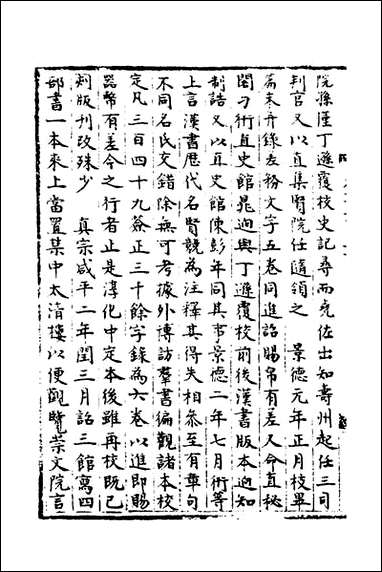 院孫僅丁遜覆校史記尋而堯佐出知壽州起任三司
判官又以直集賢院任隨領之　景德元年正月校畢
篇末并錄差務文字五卷同進詔賜帛有差又命直秘
閣刁衎直史館晁迥與丁遜覆校前後漢書版本迥知
制誥又以直史館陳彭年同其事景德二年七月衎等
上言漢書歷代名賢競為注釋其得失相參至有章句
不同名氏交錯除無可考據外博訪羣書徧觀諸本校
定凡三百四十九簽正三十餘字錄為六卷以進即賜
器幣有差今之行者止是淳化中定本後雖再校既已
刻版刊改殊少　真宗咸平二年閏三月詔三館寫四
部書一本來上當置禁中太清樓以便觀覽崇文院言